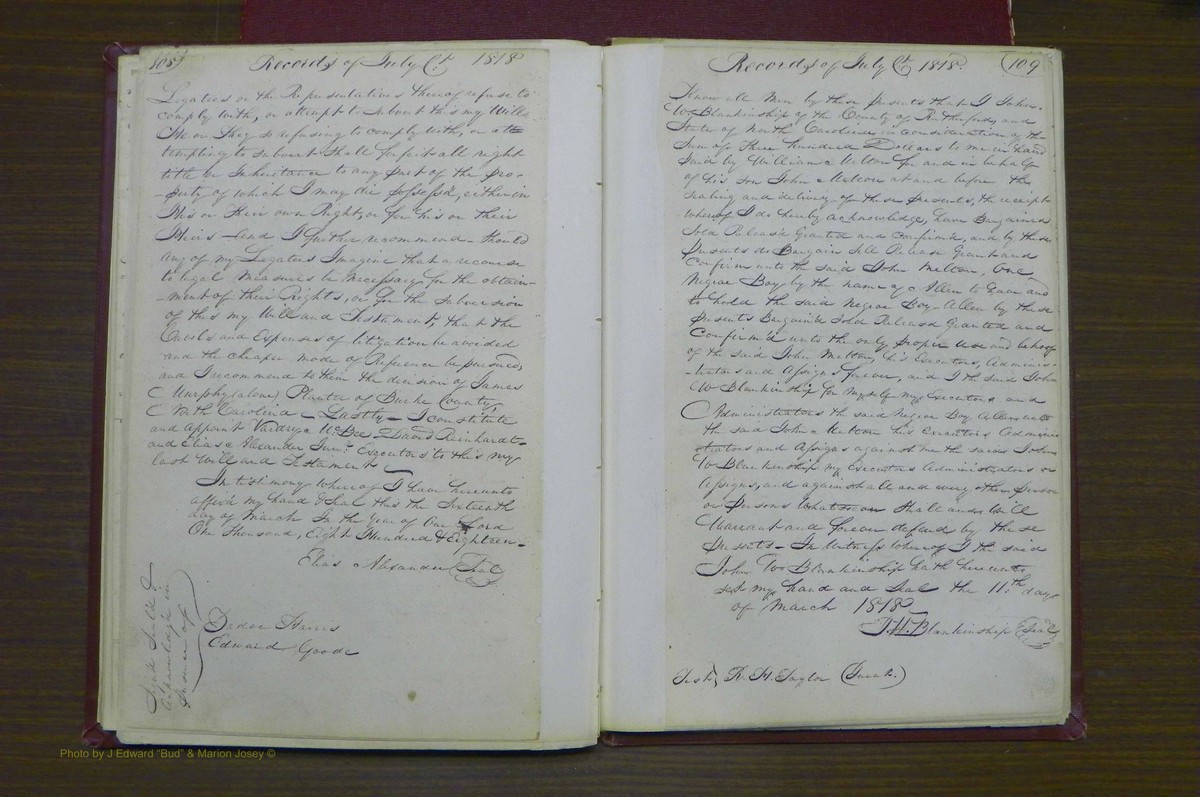 108 Records of July Ct. 1818
Legatees or the Representatives thereof refuse to
comply with, or attempt to subvert this my Will
He or they so refusing to comply with, or at-
tempting to subvert shall forfeit all right
title or Inheritance to any part of the pro-
perty of which I may die possessed, either in
His or their own Right, or for his or their
Heirs - And I further recommend - should
any of my Legatees Imagine that a recourse
to legal measures be necessary for the obtain-
-ment of their Rights, or for the subversion
of this my Will and Testament, that the
and Expenses of litigation be avoided
and the cheaper mode of Reference be pursued,
and I recommend to them the decision of James
Murphy (alone) Planter of Burke County
North Carolina - Lastly - I constitute
and Appoint Vardry McBee - David Reinhardt -
and Elias Alexander Junr. Executors to this my
last Will and Testament
In testimony whereof I have hereunto
affixd my hand & Seal this the Sixteenth
day of March In the year of Our Lord
One Thousand, Eight Hundred & Eighteen -
Elias Alexander Seal
Signd Seald &
Acknowledg'd in
presence of
Harris
Edward Goode
Records of July Ct 1818. 109
Know all Men by these presents that I John
W Blankinship of the County of Rutherford, and
State of North Carolina in consideration of the
sum of three hundred Dollars to me in hand
paid by William Melton for and in behalf
of his son John Melton at and before the
sealing and delivery of these presents, the receipt
whereof I do hereby acknowledge, have Bargained
Sold Releas'd Granted and confirm'd, and by these
presents do Bargain Sell Release Grant and
Confirm unto the said John Melton, One
Negroe Boy by the name of Allen to have and
to hold the said Negroe Boy Allen by these
presents Bargain'd Sold Released Granted and
Confirm'd unto the only proper use and behoof
of the said John Melton, his Executors, Adminis-
-trators and Assigns forever, and I the said John
W Blankinship for myself my Executors and
Administrators the said Negroe Boy Allen unto
the said John Melton his Executors Adminis
strators and Assigns against me the said John
W Blankinship my Executors Administrators or
Assigns, and against all and every other person
or persons whatsoever shall and will
Warrant and forever defend by these
presents - In Witness whereof I the said
John W Blankinship hath hereunto
set my hand and Seal the 11th day
of March 1818
J. W. Blankinship Seal
Test, R. H. Taylor
Photo by J Edward "Bud" & Marion Josey ©